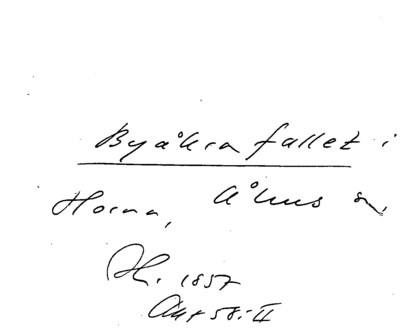 Byåkra fallet i
Horna, Åhus s.
H. 1857
Akt 58:II